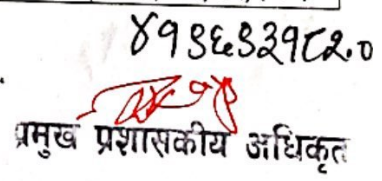 ४१३६३३१८२.०
प्रमुख प्रशासकीय अधिकृत